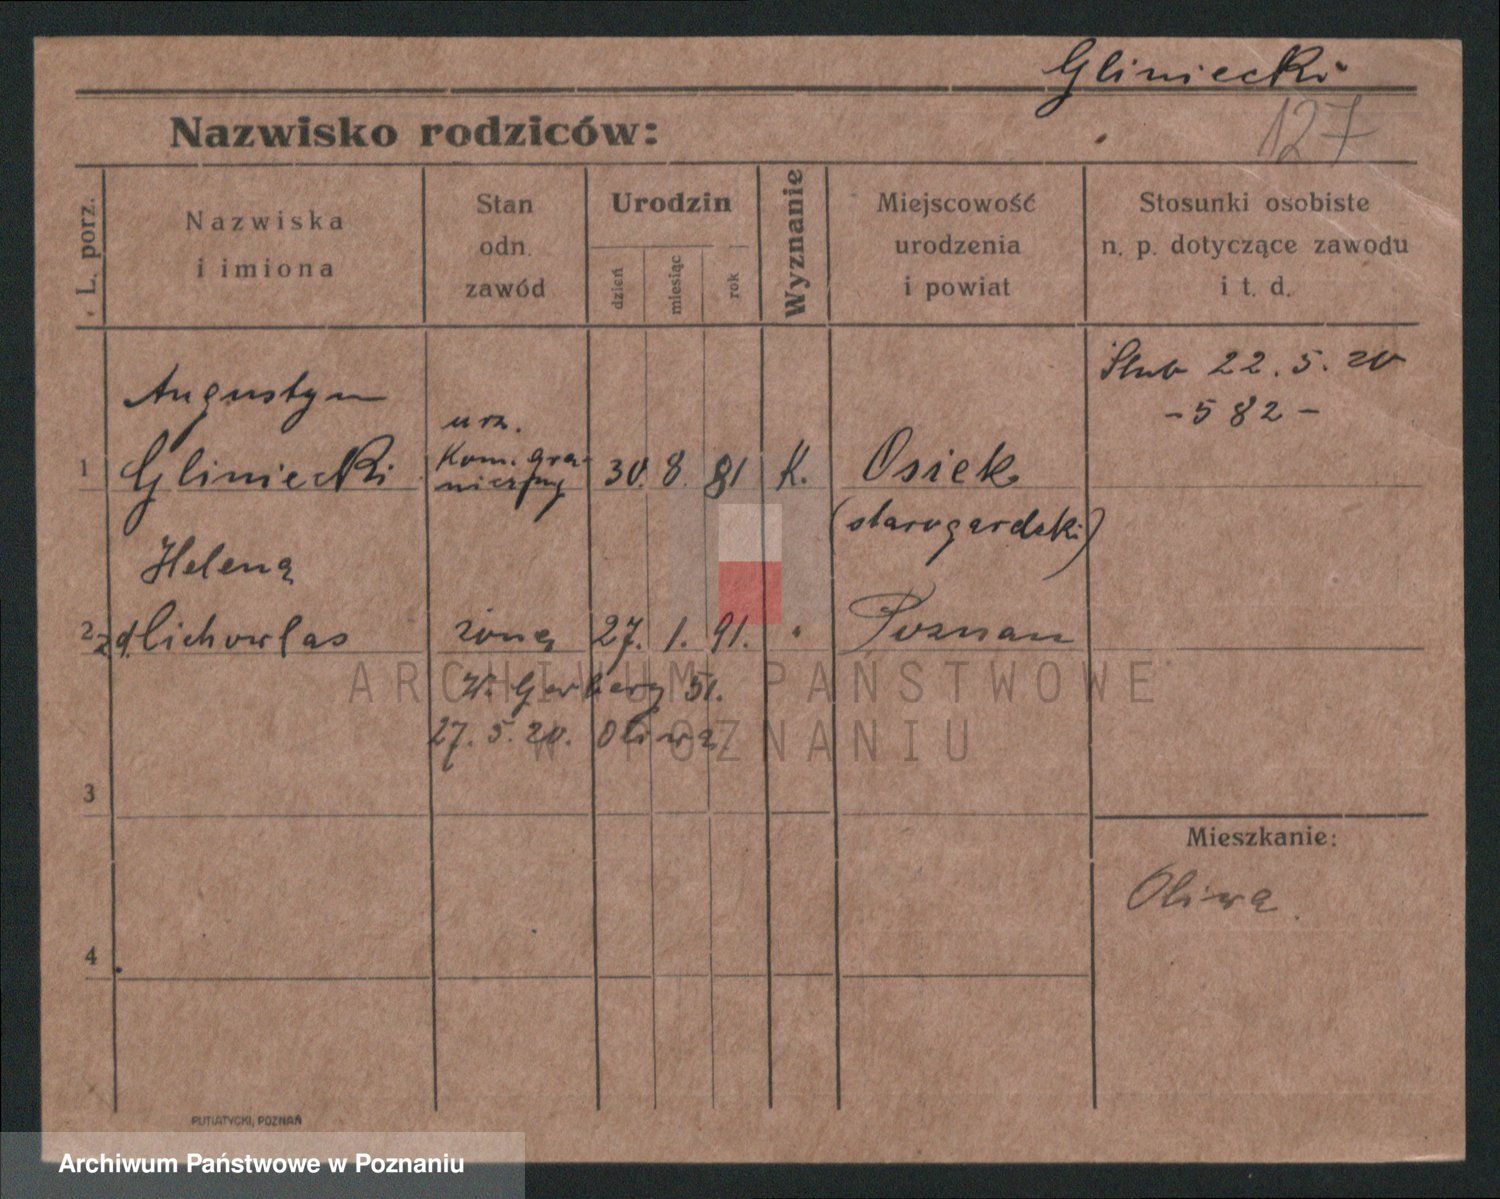 Gliniecki
127
Nazwisko rodziców:
L. porz.
Nazwiska
i imiona
Stan
odn.
zawód
Urodzin
dzień
miesiąc
rok
Wyznanie
Miejscowość
urodzenia
i powiat
Stosunki osobiste
n. p. dotyczące zawodu
i t. d.
Ślub 22. 5. 20
- 582 -
Augustyn
urz.
1 Gliniecki Kom. gra- 30. 8. 81 K. Osiek
niczny
(starogardzki)
Helena
2 z d. Cichowlas żona 27. 1. 91. " Poznań
W. Garbary 51.
27. 5. 20. Oliwa
3
Mieszkanie:
Oliwa
4
PUTIATYCKI, POZNAŃ
ARCHIWUM PAŃSTWOWE
W POZNANIU
Archiwum Państwowe w Poznaniu